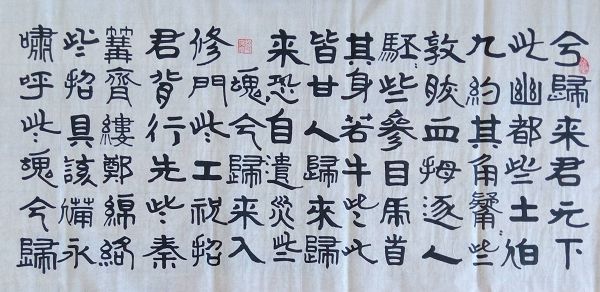 兮歸來君无下
此幽都些土伯
九約其角觺〻些
敦脄血拇逐人
駓〻些參目虎首
其身若牛些此
皆甘人歸來歸
來恐自遺災些
魂兮歸來入
修門些工祝招
君背行先些秦
篝齊縷鄭綿絡
些招具該備永
嘯呼些魂兮歸